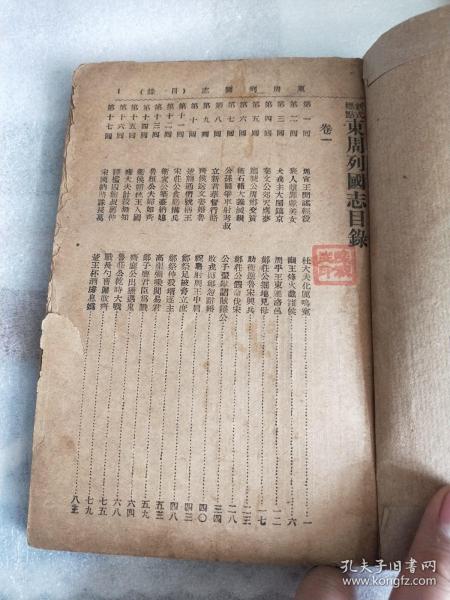 新式
標點
東周列國志目錄
卷一
第一回 周宣王聞謠輕殺 杜大夫化厲鳴冤 一
第二回 褒人贖罪獻美女 幽王烽火戲諸侯 六
第三回 犬戎主大鬧鎬京 周平王東遷洛邑 一二
第四回 秦文公郊天應夢 鄭莊公掘地見母 一七
第五回 寵虢公周鄭交質 助衛逆魯宋興兵 二三
第六回 衛石碏大義滅親 鄭莊公假命伐宋 二八
第七回 公孫閼爭車射考叔 公子翬獻諂賊隱公 三四
第八回 立新君華督行賂 敗戎兵鄭忽辭婚 四〇
第九回 齊侯送文姜婚魯 祝聃射周王中肩
第十回 楚熊通僭號稱王 鄭祭足被脅立庶 四三
第十一回 宋莊公貪賂搆兵 鄭祭仲殺壻逐主 四八
第十二回 衛宣公築臺納媳 高渠彌乘間易君 五三
第十三回 魯桓公夫婦如齊 鄭子亹君臣爲戮 五九
第十四回 衛侯朔抗王入國 齊襄公出獵遇鬼 六四
第十五回 雍大夫計殺無知 魯莊公乾時大戰 六八
第十六回 釋檻囚鮑叔薦仲 戰長勺曹劌敗齊 七五
第十七回 宋國納賂誅長萬 楚王杯酒虜息媯 七九
東周列國志（目錄） 1
孔夫子旧书网
www.kongfz.com